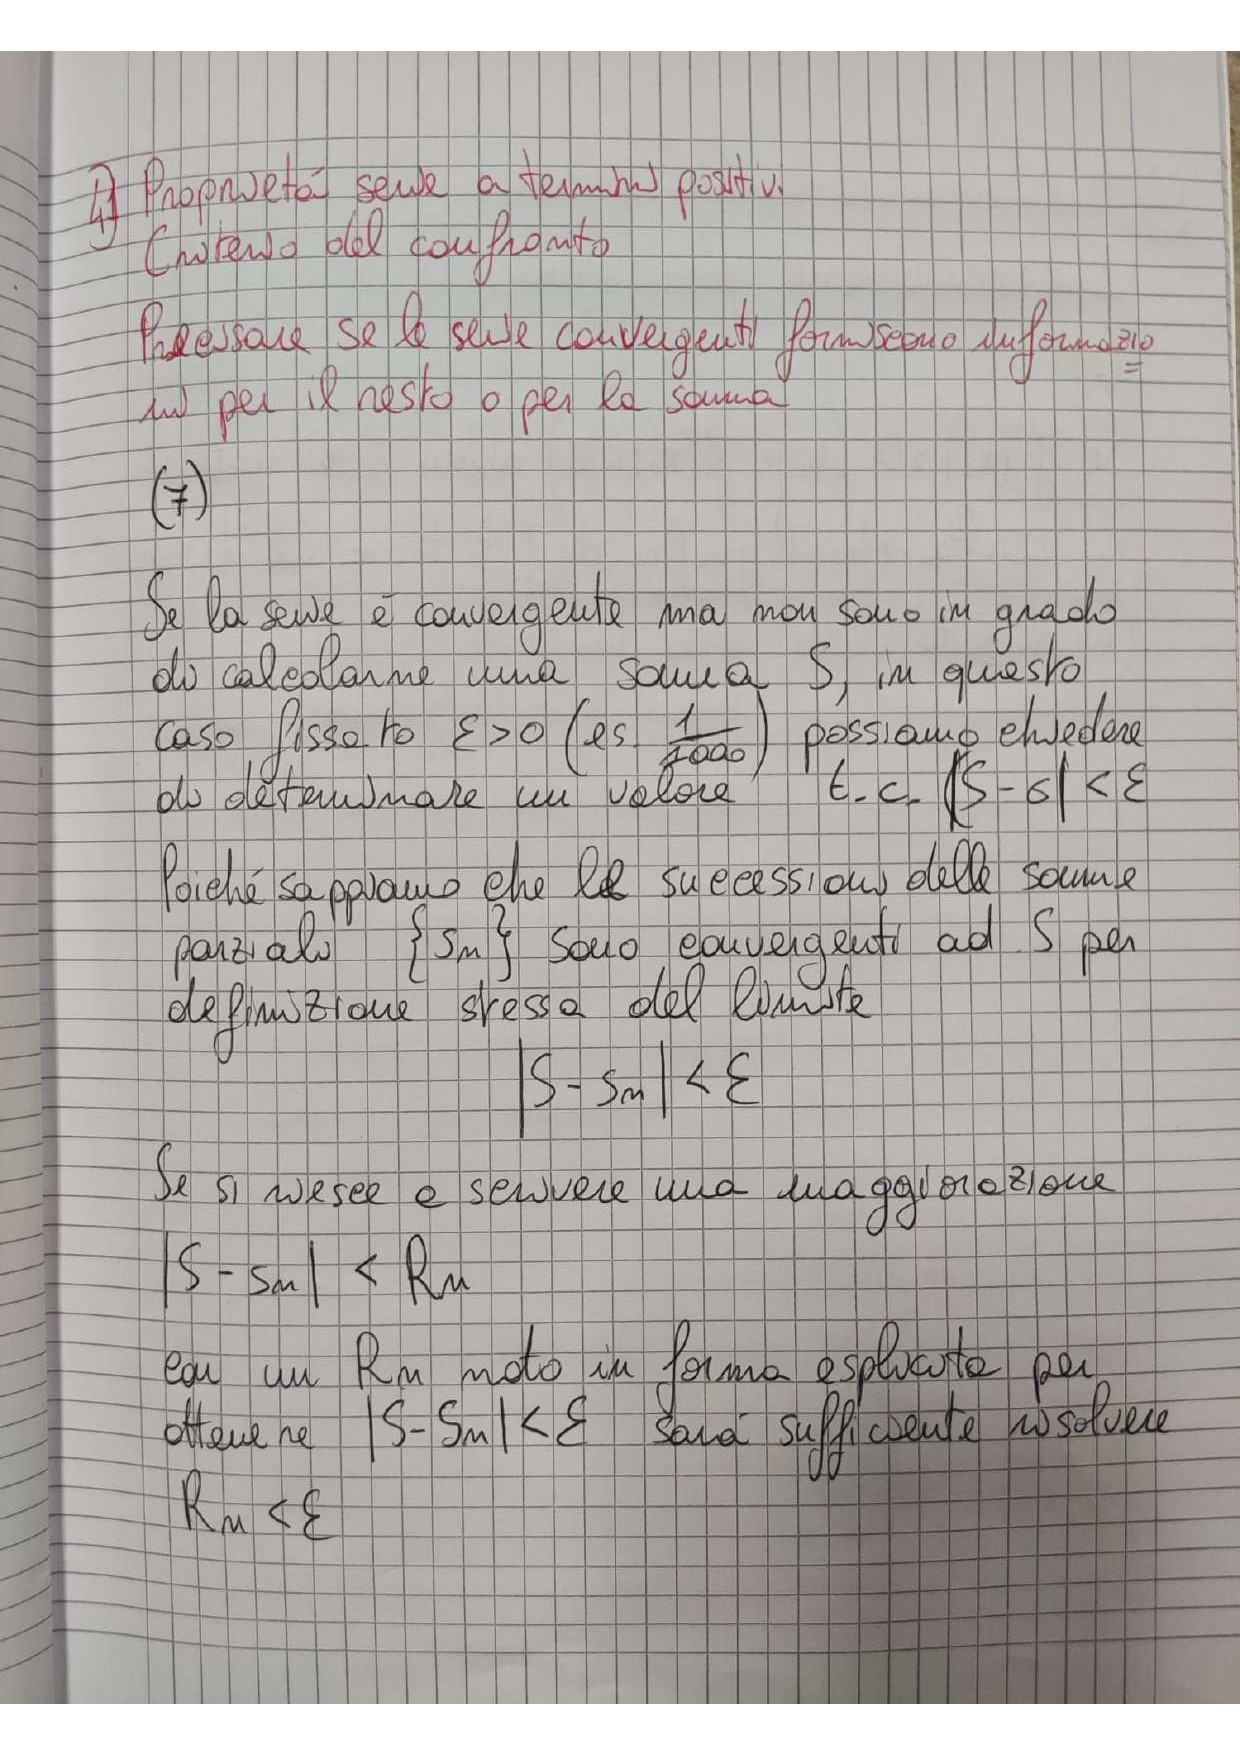 4) Proprietà serie a termini positivi
Criterio del confronto
Precisare se le serie convergenti forniscono informazio
ni per il resto o per la somma
(7)
Se la serie è convergente ma non sono in grado
di calcolarne una somma S, in questo
caso fissato ε>0 (es. 1/1000) possiamo chiedere
di determinare un valore t.c. |S-s|<ε
Poiché sappiamo che le successioni delle somme
parziali {Sn} sono convergenti ad S per
definizione stessa del limite
|S-Sn|<ε
Se si riesce a scrivere una maggiorazione
|S-Sn| < Rn
con un Rn noto in forma esplicita per
ottenere |S-Sn|<ε sarà sufficiente risolvere
Rn<ε